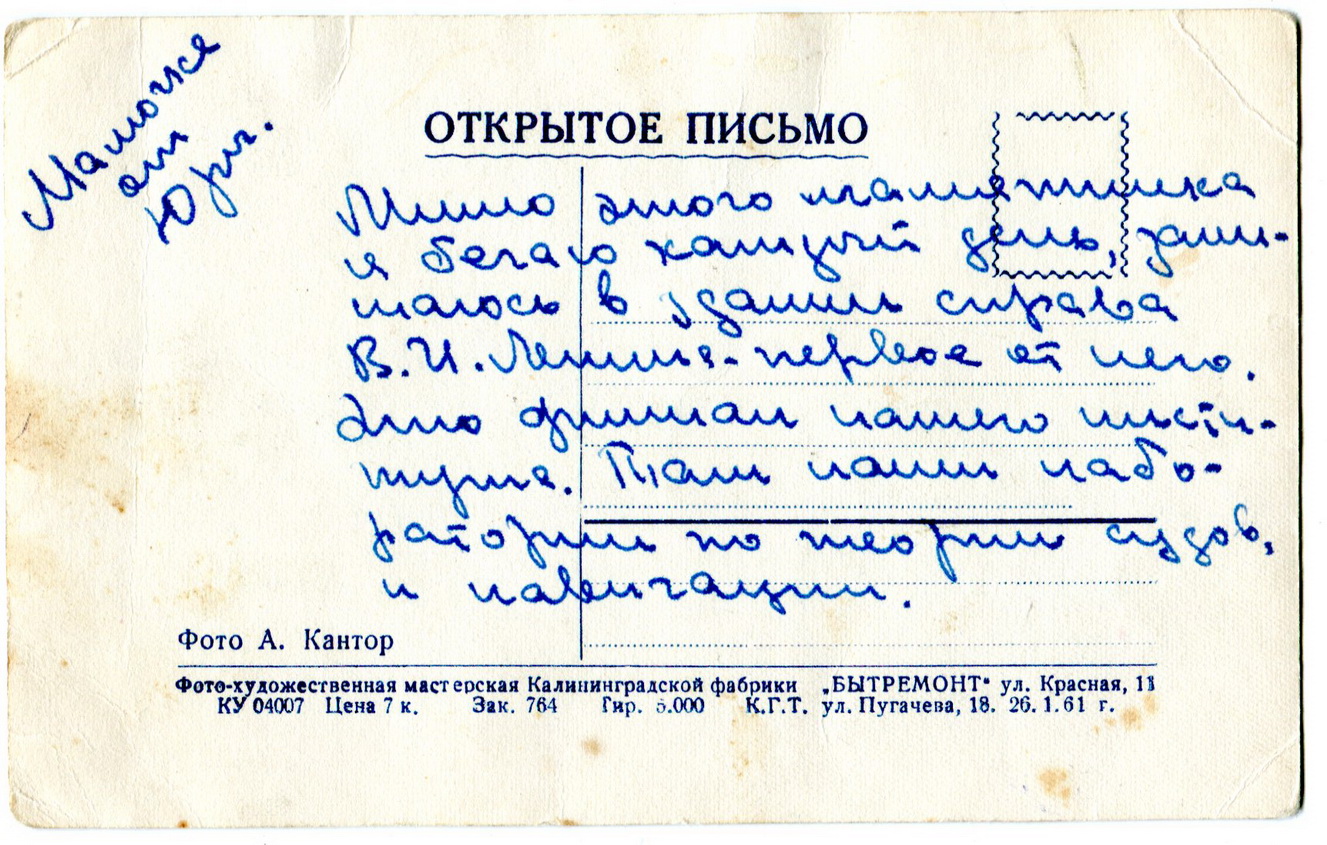 Мамочке
от
Юры.
ОТКРЫТОЕ ПИСЬМО
Мимо этого памятника
я бегаю каждый день, зани-
маюсь в здании справа
В.И. Ленина - первое от него.
Это филиал нашего инсти-
тута. Там наши лабо-
ратории по теории судов,
и навигации.
Фото А. Кантор
Фото-художественная мастерская Калининградской фабрики „БЫТРЕМОНТ" ул. Красная, 11
КУ 04007 Цена 7 к. Зак. 764 Тир. 5.000 К.Г.Т. ул. Пугачева, 18. 26.1.61 г.